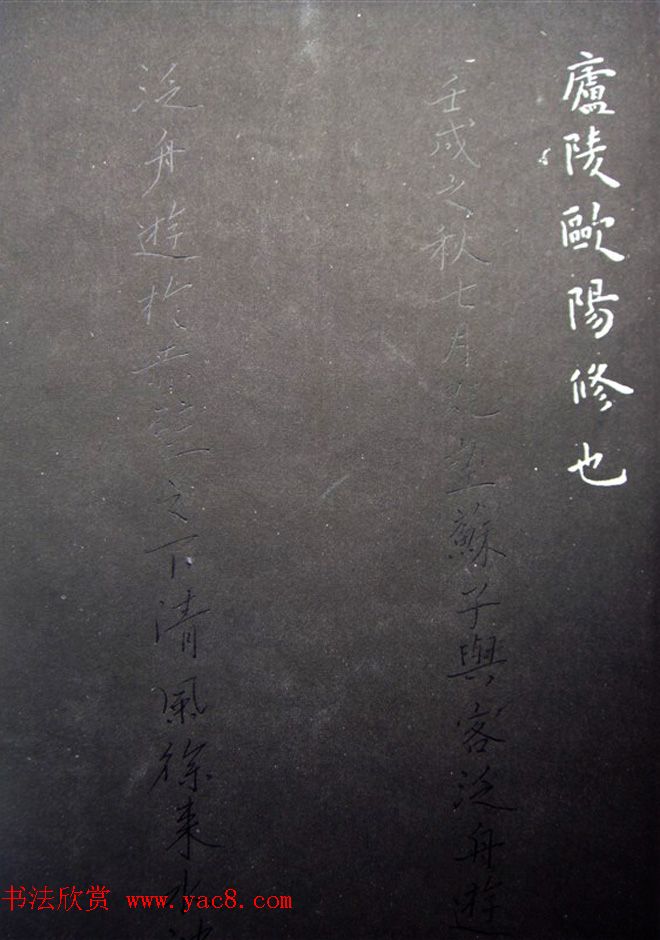 廬陵歐陽修也
壬戌之秋七月既望蘇子與客泛舟遊
泛舟遊於赤壁之下清風徐来水波
书法欣赏 www.yac8.com